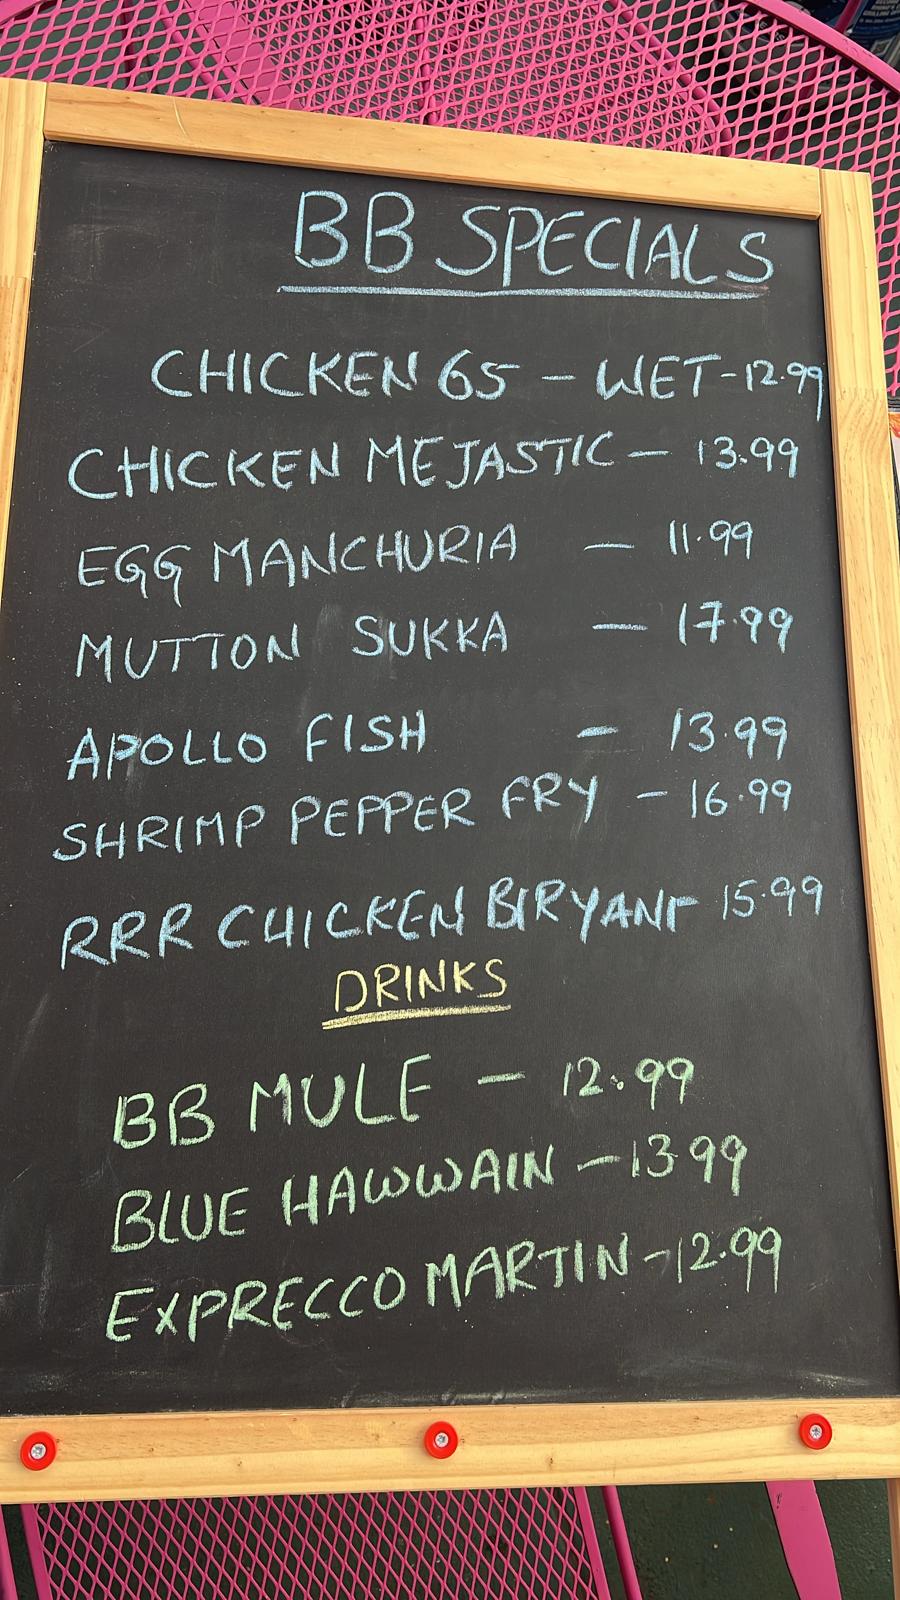 BB SPECIALS
CHICKEN 65 - WET - 12.99
CHICKEN MEJASTIC - 13.99
EGG MANCHURIA - 11.99
MUTTON SUKKA - 17.99
APOLLO FISH - 13.99
SHRIMP PEPPER FRY - 16.99
RRR CHICKEN BIRYANI - 15.99
DRINKS
BB MULE - 12.99
BLUE HAWWAIN - 13.99
EXPRECCO MARTIN - 12.99